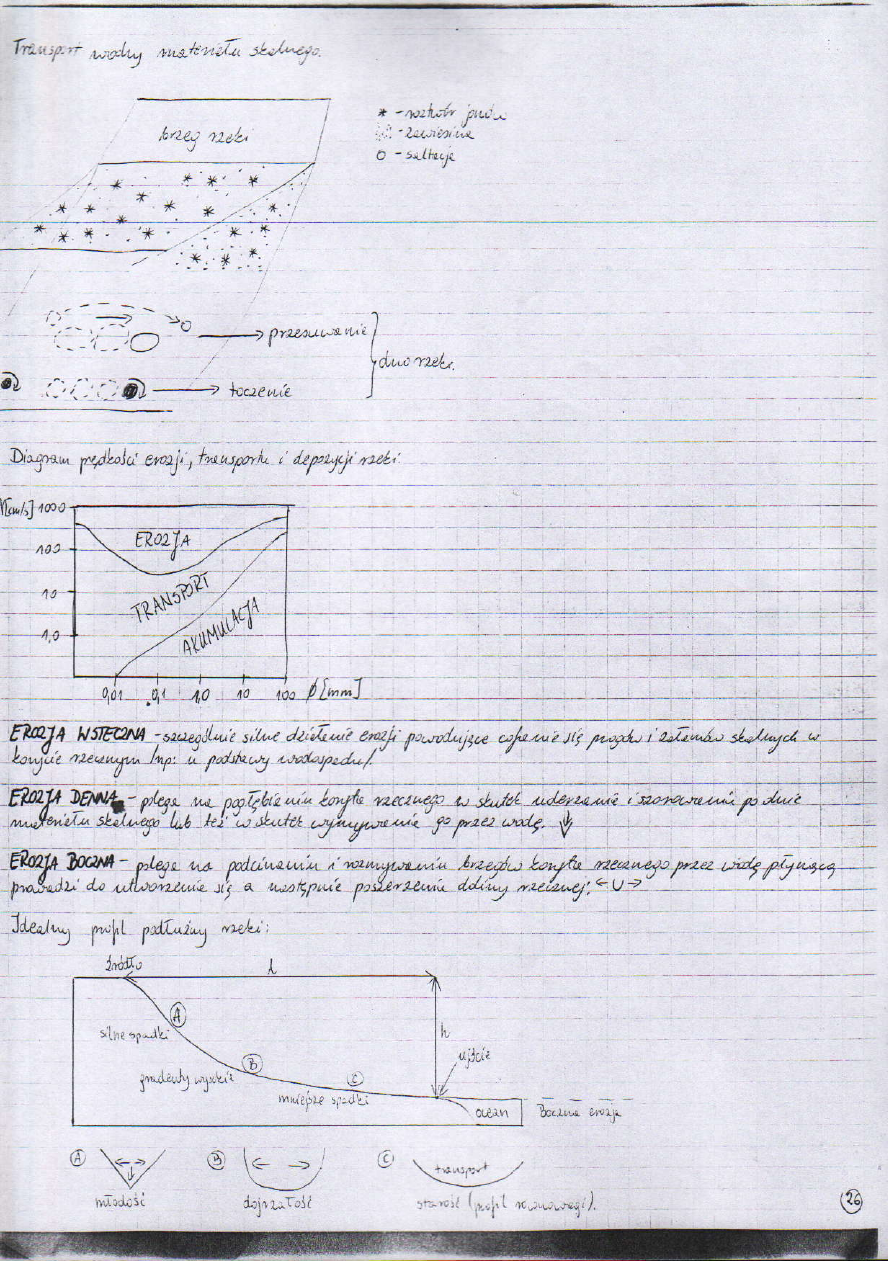 Transport wodny materiału skalnego.
brzeg rzeki
* - roztwór jonów
- zawiesina
O - saltacja
przesuwanie
dno rzeki.
toczenie
Diagram prędkości erozji, transportu i depozycji rzeki:
V[cm/s] 1000
100
10
1,0
EROZJA
TRANSPORT
AKUMULACJA
0,01 0,1 1,0 10 100 Ø [mm]
EROZJA WSTECZNA - szczególnie silne działanie erozji powodujące cofanie się progów i załomów skalnych w
korycie rzecznym /np: u podstawy wodospadu/.
EROZJA DENNA - polega na pogłębieniu koryta rzecznego w skutek uderzania i szorowania po dnie
materiału skalnego lub też w skutek wymywania go przez wodę. ⇓
EROZJA BOCZNA - polega na podcinaniu i rozmywaniu brzegów koryta rzecznego przez wodę płynącą
prowadzi do utworzenia się a następnie poszerzenia doliny rzecznej. ← U →
Idealny profil podłużny rzeki:
źródło
A
h
silne spadki
B
ujście
gradienty wysokie
C
mniejsze spadki
ocean
Boczna erozja
A
B
C
transport
młodość
dojrzałość
starość (profil równowagi).
26